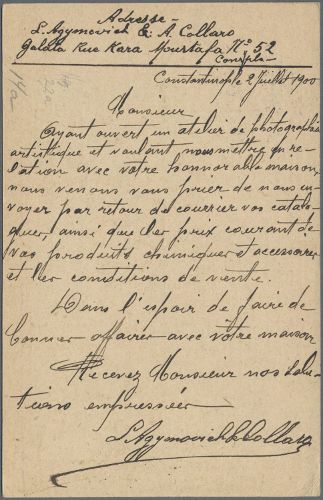 Adresse
L. Azymovich & A. Collaro
Galata Rue Kara Moustafa No 52
Consple
Constantinople 2 Juillet 1900
14a
22a
Monsieur
Ayant ouvert un atelier de photographie
artistique et voulant nous mettre en re-
lation avec votre honnorable maison,
nous venons vous prier de nous en
voyer par retour de courrier vos catalo-
gues, ainsi que les prix courant de
vos produits chimiques et accessoires
et les conditions de vente.
Dans l'espoir de faire de
bonnes affaires avec votre maison
Recevez Monsieur nos salu-
tions empressées
L. Azymovich & Collaro